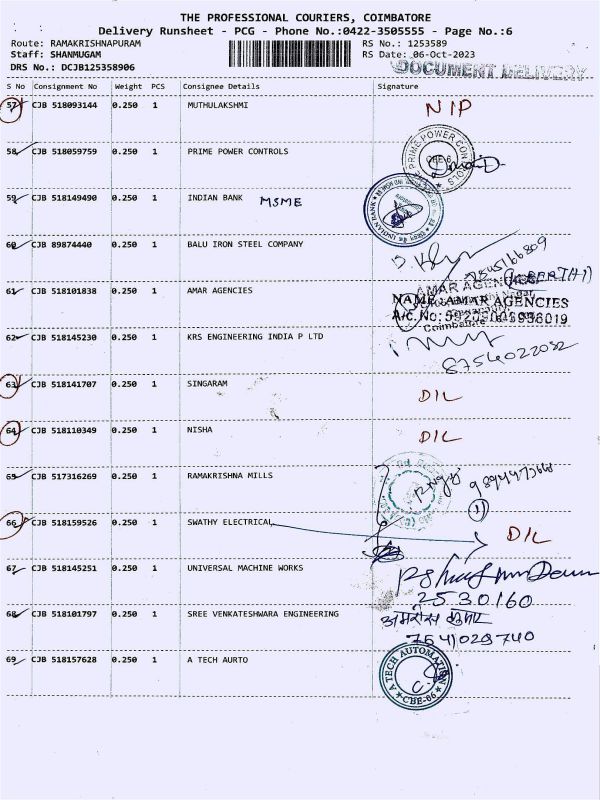 THE PROFESSIONAL COURIERS, COIMBATORE
Delivery Runsheet - PCG - Phone No.:0422-3505555 - Page No.:6
Route: RAMAKRISHNAPURAM RS No.: 1253589
Staff: SHANMUGAM RS Date: 06-Oct-2023
DRS No.: DCJB125358906 DOCUMENT DELIVERY
S No Consignment No Weight PCS Consignee Details Signature
57 CJB 518093144 0.250 1 MUTHULAKSHMI NIP
58 CJB 518059759 0.250 1 PRIME POWER CONTROLS PRIME POWER CONTROLS CBE-6
59 CJB 518149490 0.250 1 INDIAN BANK MSME INDIAN BANK
60 CJB 89874440 0.250 1 BALU IRON STEEL COMPANY
61 CJB 518101838 0.250 1 AMAR AGENCIES AMAR AGENCIES
NAME: AMAR AGENCIES
Coimbatore
62 CJB 518145230 0.250 1 KRS ENGINEERING INDIA P LTD
8754022052
63 CJB 518141707 0.250 1 SINGARAM D/L
64 CJB 518110349 0.250 1 NISHA D/L
65 CJB 517316269 0.250 1 RAMAKRISHNA MILLS
66 CJB 518159526 0.250 1 SWATHY ELECTRICAL D/L
67 CJB 518145251 0.250 1 UNIVERSAL MACHINE WORKS
2530160
68 CJB 518101797 0.250 1 SREE VENKATESHWARA ENGINEERING
7641029740
69 CJB 518157628 0.250 1 A TECH AURTO A TECH AUTOMATION CBE-06